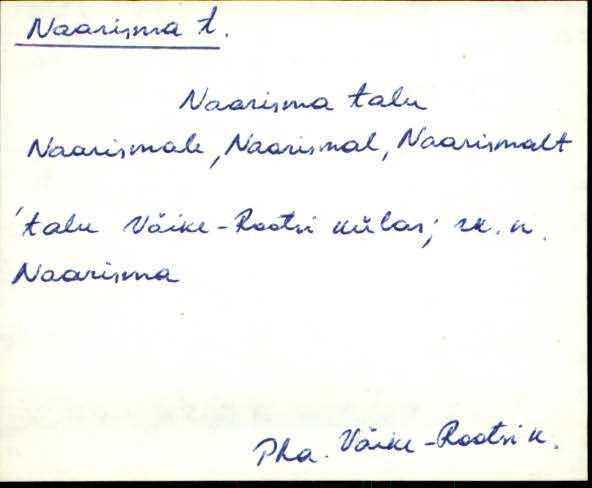 Naarisma t.
Naarisma talu
Naarismale, Naarismal, Naarismalt
'talu Väike-Rootsi külas; rk. n.
Naarisma
Pha. Väike-Rootsi k.